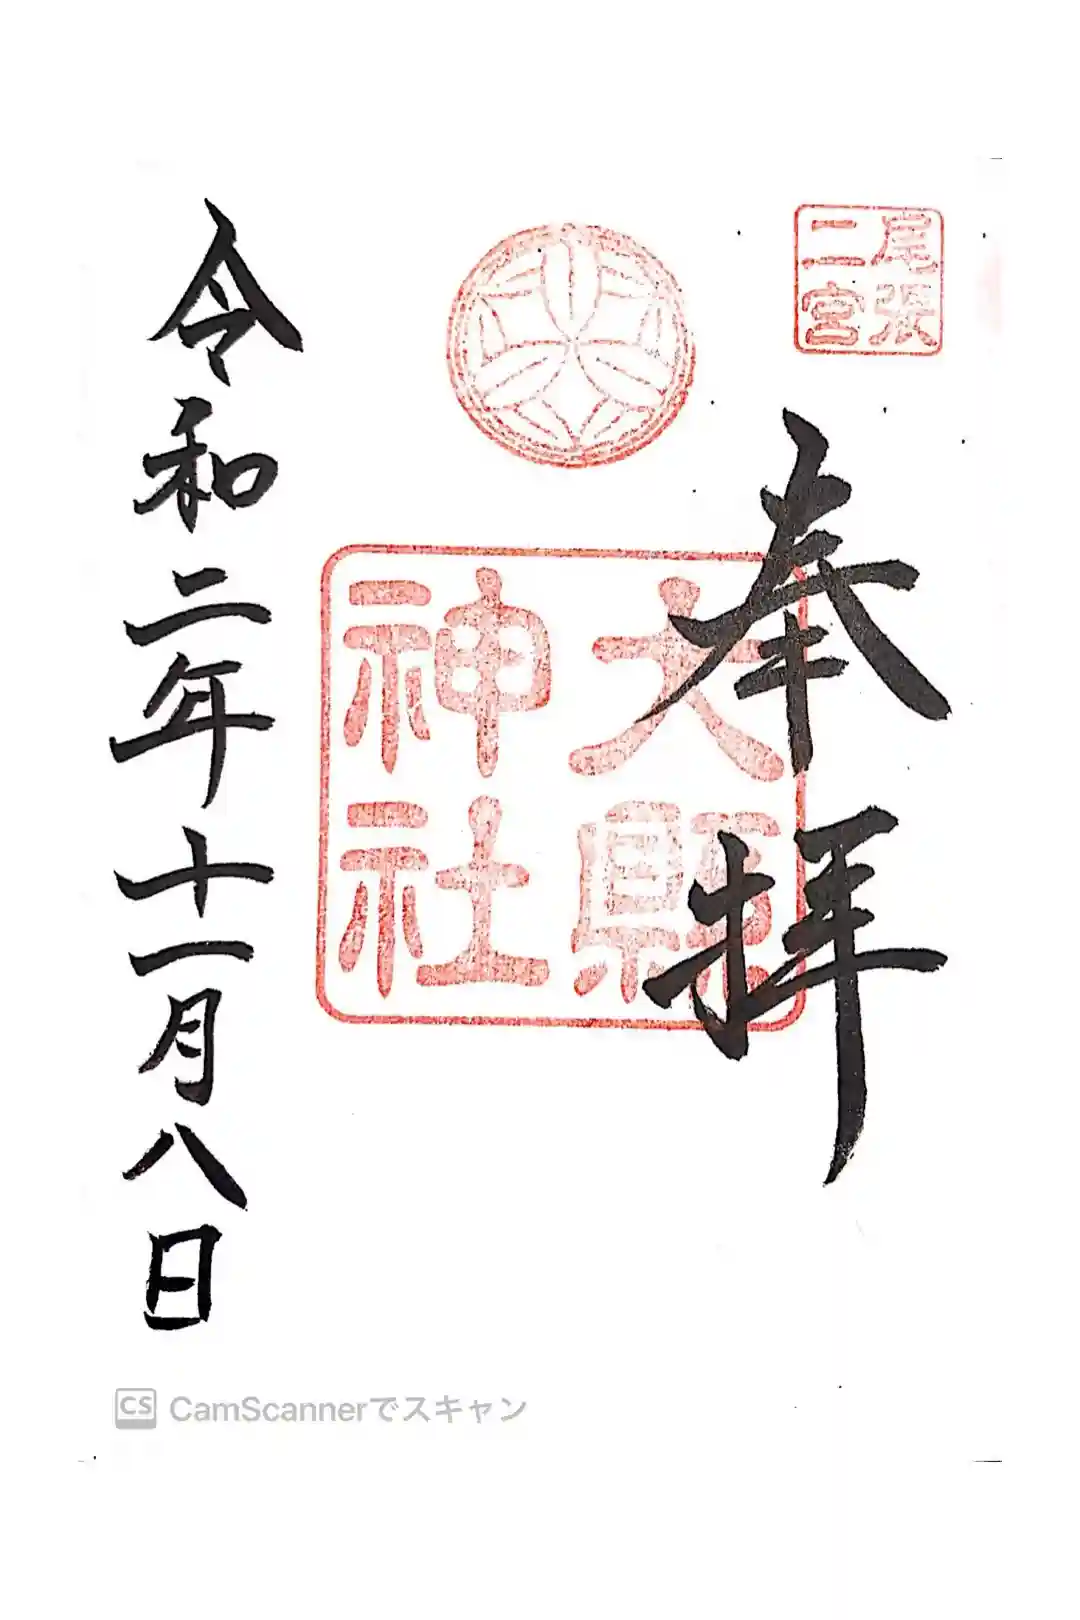 尾張
二宮
奉拝
大縣
神社
令和二年十一月八日
CS CamScannerでスキャン